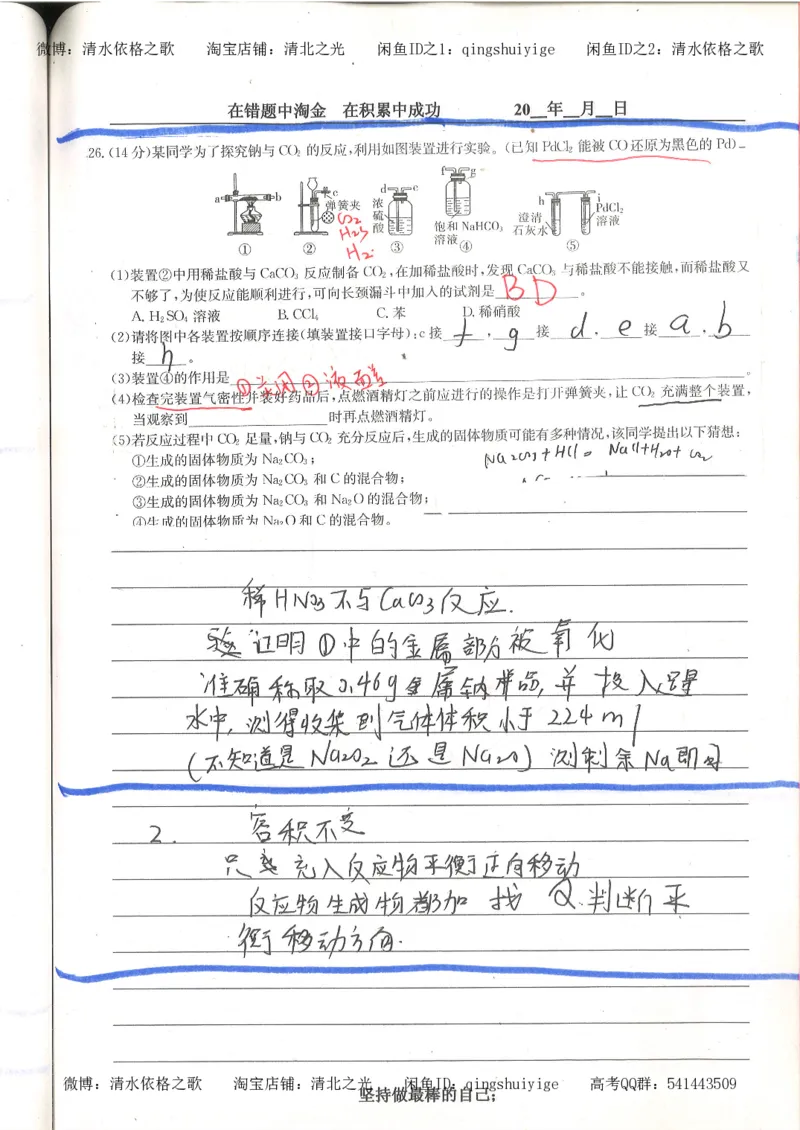 微博：清水依格之歌 淘宝店铺：清北之光 闲鱼ID之1：qingshuiyige 闲鱼ID之2：清水依格之歌
在错题中淘金 在积累中成功 20__年__月__日
26.(14分)某同学为了探究钠与CO₂的反应,利用如图装置进行实验。(已知PdCl₂能被CO还原为黑色的Pd)
a b c 弹簧夹 d e 浓硫酸 f g 饱和NaHCO₃溶液 h i 澄清石灰水 PdCl₂溶液
CO₂
H₂S
H₂
① ② ③ ④ ⑤
(1)装置②中用稀盐酸与CaCO₃反应制备CO₂,在加稀盐酸时,发现CaCO₃与稀盐酸不能接触,而稀盐酸又
不够了,为使反应能顺利进行,可向长颈漏斗中加入的试剂是 BD 。
A. H₂SO₄溶液 B. CCl₄ C. 苯 D. 稀硝酸
(2)请将图中各装置按顺序连接(填装置接口字母):c接 f , g 接 d . e 接 a . b
接 h 。
(3)装置④的作用是 。
①关闭②液面差
(4)检查完装置气密性并装好药品后,点燃酒精灯之前应进行的操作是打开弹簧夹,让CO₂充满整个装置,
当观察到 时再点燃酒精灯。
(5)若反应过程中CO₂足量,钠与CO₂充分反应后,生成的固体物质可能有多种情况,该同学提出以下猜想:
①生成的固体物质为Na₂CO₃;
Na2CO3+HCl= NaCl+H2O+CO2
②生成的固体物质为Na₂CO₃和C的混合物;
③生成的固体物质为Na₂CO₃和Na₂O的混合物;
④生成的固体物质为Na₂O和C的混合物。
稀HNO3不与CaCO3反应.
验证明①中的金属部分被氧化
准确称取0.46g金属钠样品,并投入足量
水中,测得收集到气体体积小于224ml
(不知道是Na2O2还是Na2O)测剩余Na即可
2. 容积不变
只要充入反应物平衡正向移动
反应物生成物都加 找Q.判断平
衡移动方向.
微博：清水依格之歌 淘宝店铺：清北之光 闲鱼ID：qingshuiyige 高考QQ群：541443509
坚持做最棒的自己;